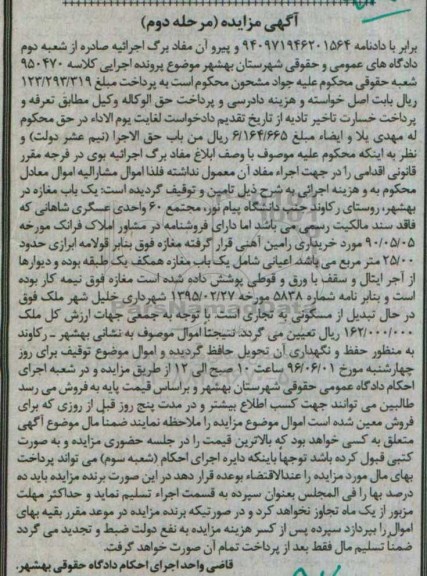 آگهی مزایده (مرحله دوم)
برابر با دادنامه ۹۴۰۹۷۱۹۴۶۲۰۱۵۶۴ و پیرو آن مفاد برگ اجرائیه صادره از شعبه دوم
دادگاه های عمومی و حقوقی شهرستان بهشهر موضوع پرونده اجرایی کلاسه ۹۵۰۴۷۰
شعبه حقوقی محکوم علیه جواد مشحون محکوم است به پرداخت مبلغ ۱۲۳/۲۹۳/۳۱۹
ریال بابت اصل خواسته و هزینه دادرسی و پرداخت حق الوکاله وکیل مطابق تعرفه و
پرداخت خسارت تاخیر تادیه از تاریخ تقدیم دادخواست لغایت یوم الاداء در حق محکوم
له مهدی یلا و ایضاء مبلغ ۶/۱۶۴/۶۶۵ ریال من باب حق الاجرا (نیم عشر دولت) و
نظر به اینکه محکوم علیه موصوف با وصف ابلاغ مفاد برگ اجرائیه بوی در فرجه مقرر
قانونی اقدامی را در جهت اجراء مفاد آن معمول نداشته فلذا اموال مشارالیه اموال معادل
محکوم به و هزینه اجرائی به شرح ذیل تامین و توقیف گردیده است: یک باب مغازه در
بهشهر، روستای رکاوند جنب دانشگاه پیام نور، مجتمع ۶۰ واحدی عسگری شاهانی که
فاقد سند مالکیت رسمی می باشد اما دارای فروشنامه در مشاور املاک فرانک مورخه
۹۰/۰۵/۰۵ مورد خریداری رامین آهنی قرار گرفته مغازه فوق بنابر قولامه ابرازی حدود
۲۵/۰۰ متر مربع می باشد اعیانی شامل یک باب مغازه همکف یک طبقه بوده و دیوارها
از آجر ایتال و سقف با ورق و قوطی پوشش داده شده است مغازه فوق نیمه کار بوده
است و بنابر نامه شماره ۵۸۳۸ مورخه ۱۳۹۵/۰۲/۲۷ شهرداری خلیل شهر ملک فوق
در حال تبدیل از مسکونی به تجاری است. با توجه به جمعی جهات ارزش کل ملک
۱۶۲/۰۰۰/۰۰۰ ریال تعیین می گردد. نتیجتا اموال موصوف به نشانی بهشهر ـ رکاوند
به منظور حفظ و نگهداری آن تحویل حافظ گردیده و اموال موضوع توقیف برای روز
چهارشنبه مورخ ۹۶/۰۶/۰۱ ساعت ۱۰ صبح الی ۱۲ از طریق مزایده و در شعبه اجرای
احکام دادگاه عمومی حقوقی شهرستان بهشهر و براساس قیمت پایه به فروش می رسد
طالبین می توانند جهت کسب اطلاع بیشتر و در مدت پنج روز قبل از روزی که برای
فروش معین شده است اموال موضوع مزایده را ملاحظه نمایند ضمنا مال موضوع آگهی
متعلق به کسی خواهد بود که بالاترین قیمت را در جلسه حضوری مزایده و به صورت
کتبی قبول کرده باشد توجها باینکه دایره اجرای احکام (شعبه سوم) می تواند پرداخت
بهای مال مورد مزایده را عندالاقتضاء بوعده قرار دهد در این صورت برنده مزایده باید ده
درصد بها را فی المجلس بعنوان سپرده به قسمت اجراء تسلیم نماید و حداکثر مهلت
مزبور از یک ماه تجاوز نخواهد کرد و در صورتیکه برنده مزایده در موعد مقرر بقیه بهای
اموال را نپردازد سپرده پس از کسر هزینه مزایده به نفع دولت ضبط و تجدید می گردد
ضمناً تسلیم مال فقط بعد از پرداخت تمام آن صورت خواهد گرفت.
قاضی واحد اجرای احکام دادگاه حقوقی بهشهر.